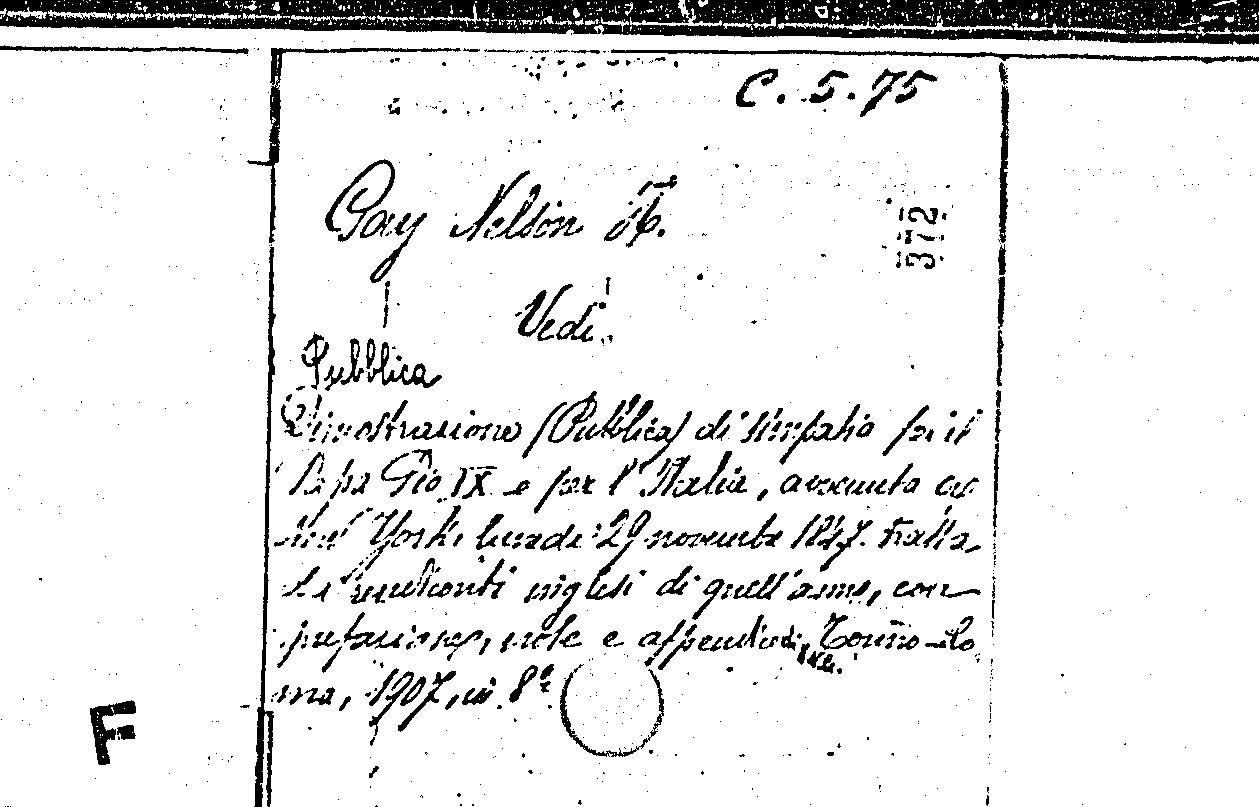 C. 5. 75
Gay Nelson H.
372
Vedi.
Pubblica
Dimostrazione (Pubblica) di simpatia per il
Papa Pio IX e per l'Italia, avvenuta a
New York, lunedì 29 novembre 1847. Tratta
da rendiconti inglesi di quell'anno, con
prefazione, note e appendici, Torino-Ro
ma, 1907, in 8º
F